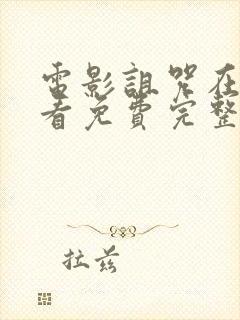 電影詛咒在
看免費完整
拉兹